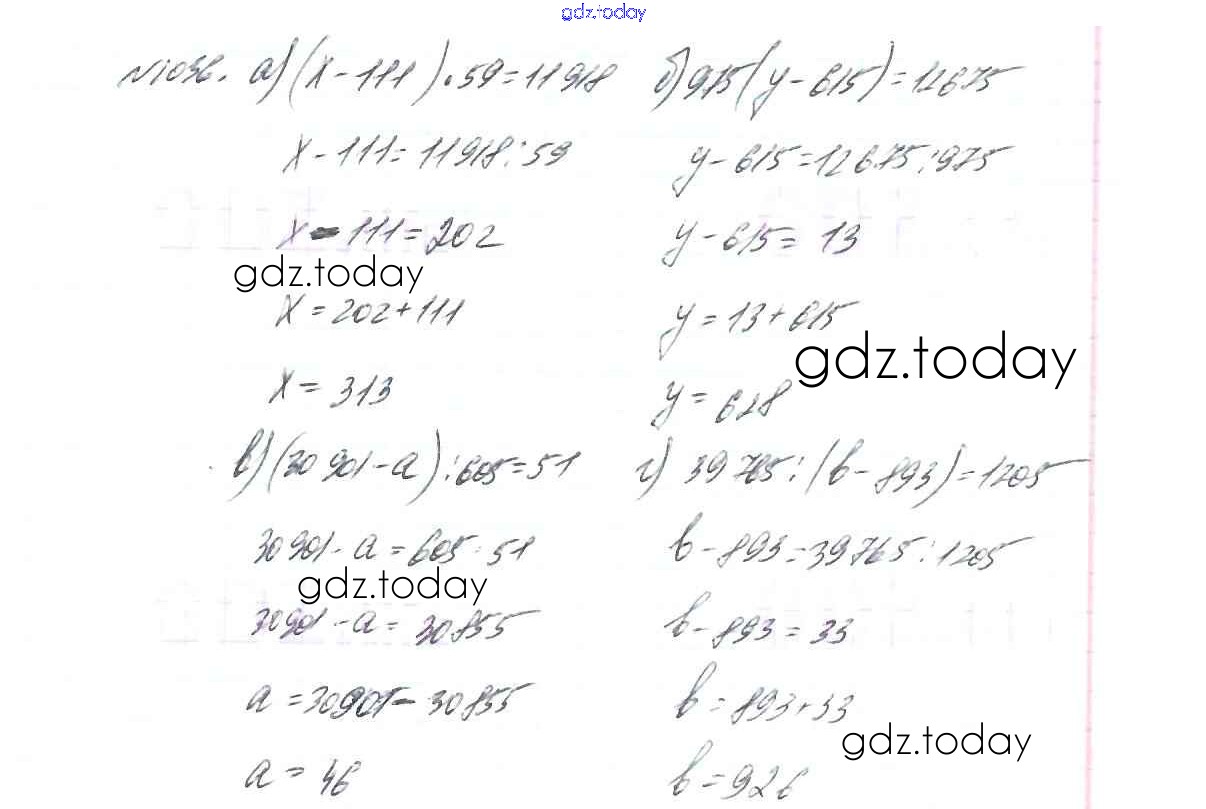 gdz.today
№1036. а) (x - 111) · 59 = 11918
x - 111 = 11918 : 59
x - 111 = 202
gdz.today
x = 202 + 111
x = 313
б) 975 (y - 615) = 12675
y - 615 = 12675 : 975
y - 615 = 13
y = 13 + 615
gdz.today
y = 628
в) (30 901 - a) : 605 = 51
30901 - a = 605 · 51
gdz.today
30901 - a = 30855
a = 30901 - 30855
a = 46
г) 39 765 : (b - 893) = 1205
b - 893 = 39765 : 1205
b - 893 = 33
b = 893 + 33
gdz.today
b = 926